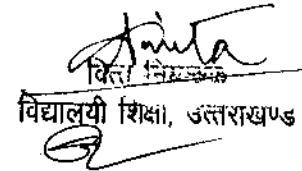 वित्त नियंत्रक
विद्यालयी शिक्षा, उत्तराखण्ड